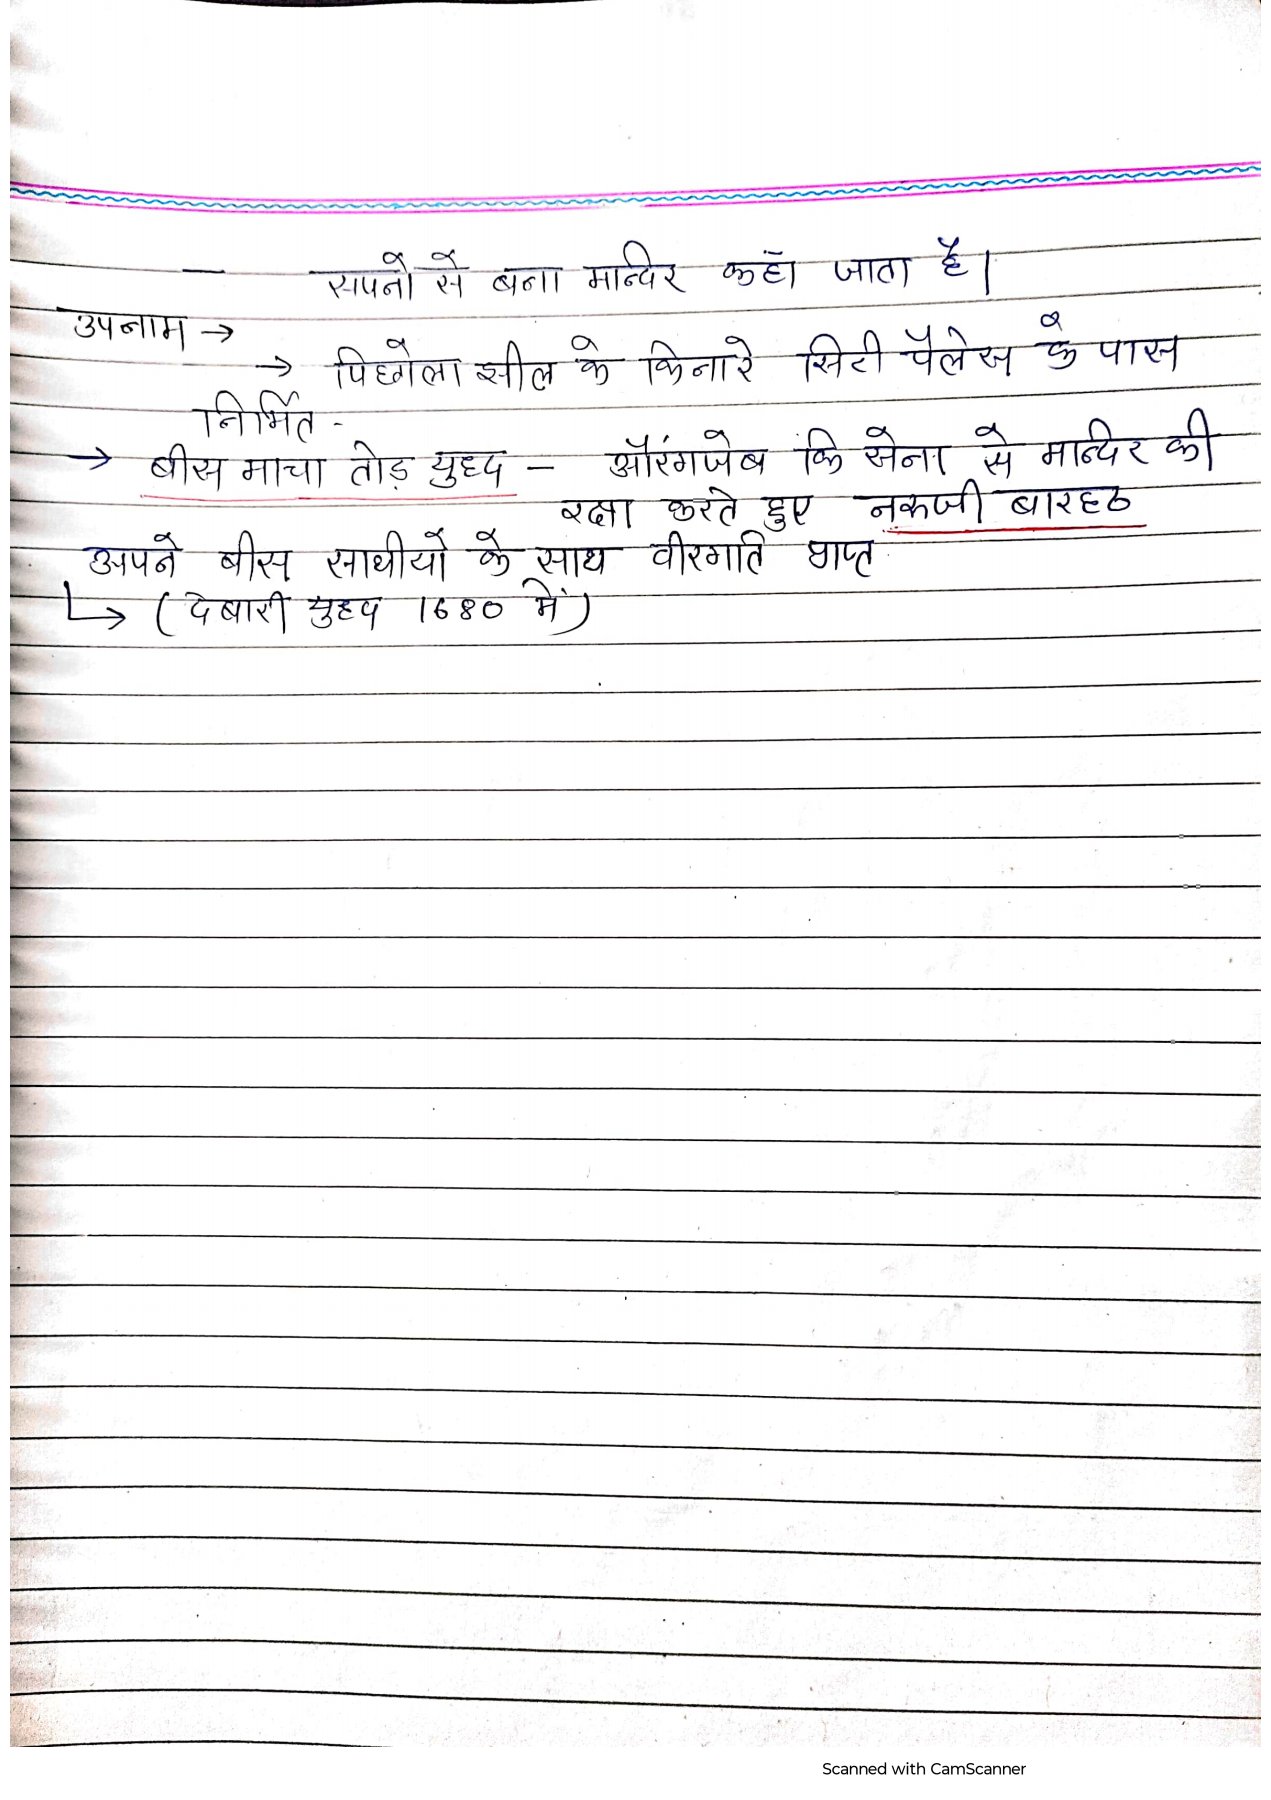 — सपनो से बना मन्दिर कहाँ जाता है।
उपनाम →
→ पिछोला झील के किनारे सिटी पैलेस के पास
निर्मित -
→ बीस माचा तोड़ युद्ध – औरंगजेब कि सेना से मन्दिर की
रक्षा करते हुए नरूजी बारहठ
अपने बीस साथीयो के साथ वीरगति प्राप्त
↳ (देबारी युद्ध 1680 में)
Scanned with CamScanner